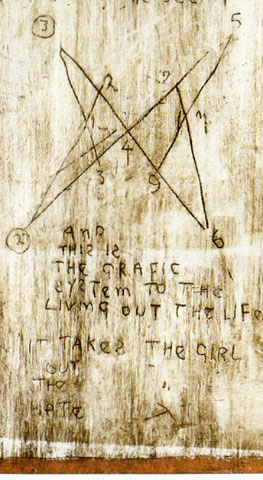 3 5
2 2
1 7
4
3 9
27 6
AND
THIS IS
THE GRAFIC
SYSTEM TO THE
LIVING OUT THE LIFE
IT TAKES THE GIRL
OUT " "
THE
HATE